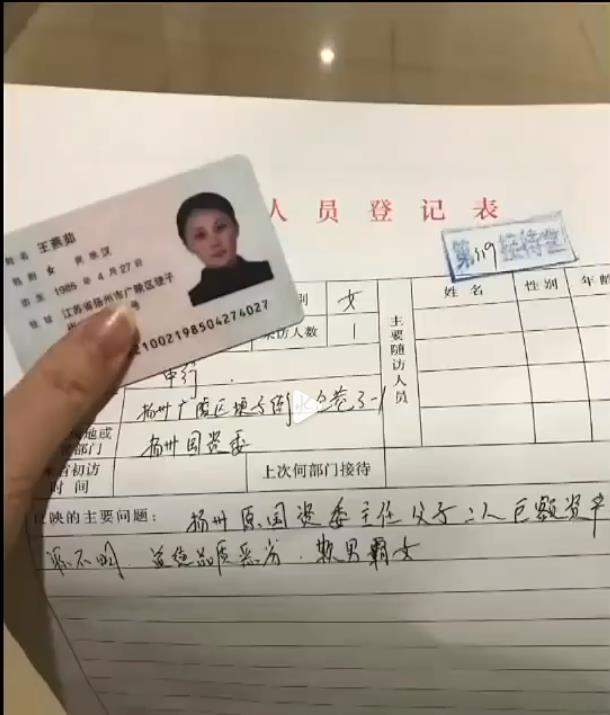 人员登记表
第319接待室
姓名 王
性别 女 民族 汉
出生 1985 年 4 月 27 日
住址 江苏省扬州市广陵区埂子
号
21002198504274027
别 女
来访人数 1
主要随访人员
姓名 性别 年龄
中行
扬州广陵区埂子街
地或
部门 扬州国资委
初访
时间
上次何部门接待
反映的主要问题： 扬州原国资委主任父子二人巨额资产
源不明，道德品质恶劣，欺男霸女